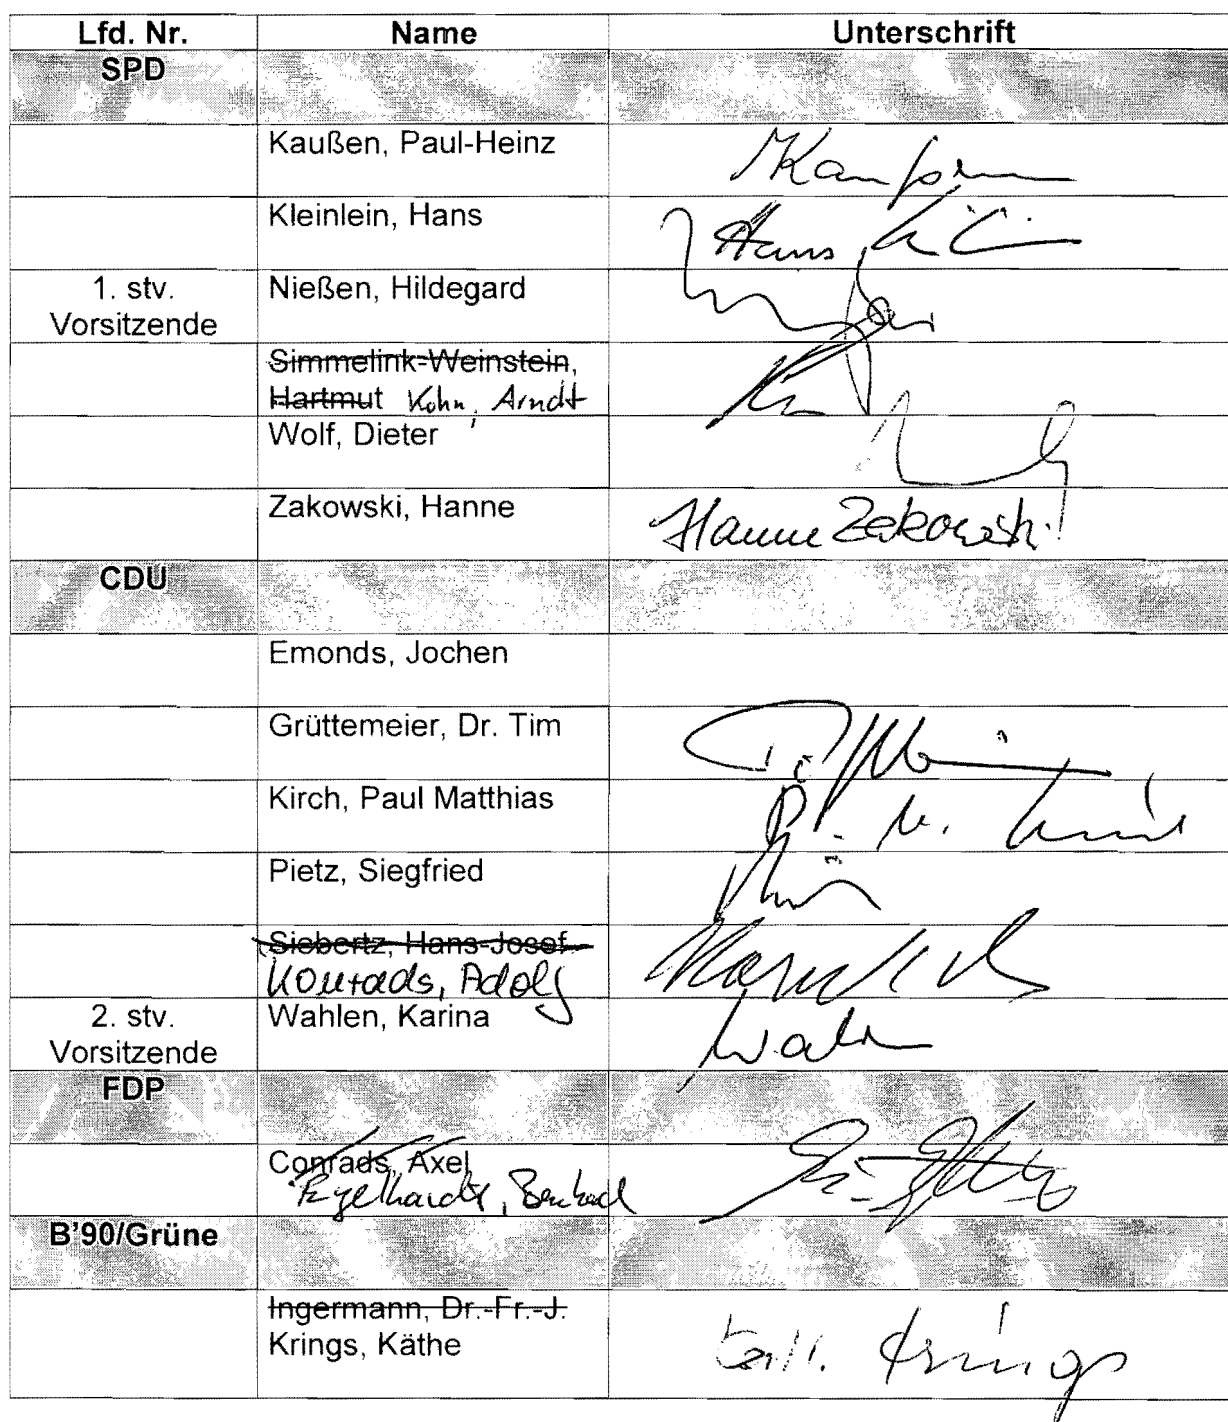 Lfd. Nr. Name Unterschrift
SPD
Kaußen, Paul-Heinz Kaußen
Kleinlein, Hans Hans
1. stv. Nießen, Hildegard
Vorsitzende
Simmelink-Weinstein,
Hartmut Kohn, Arndt
Wolf, Dieter
Zakowski, Hanne Hanne Zakowski
CDU
Emonds, Jochen
Grüttemeier, Dr. Tim
Kirch, Paul Matthias P. M. Kirch
Pietz, Siegfried
Siebertz, Hans-Josef
Konrads, Adolf
2. stv. Wahlen, Karina
Vorsitzende
FDP
Conrads, Axel
Engelhardt, Bernhard
B'90/Grüne
Ingermann, Dr.-Fr.-J.
Krings, Käthe Krings